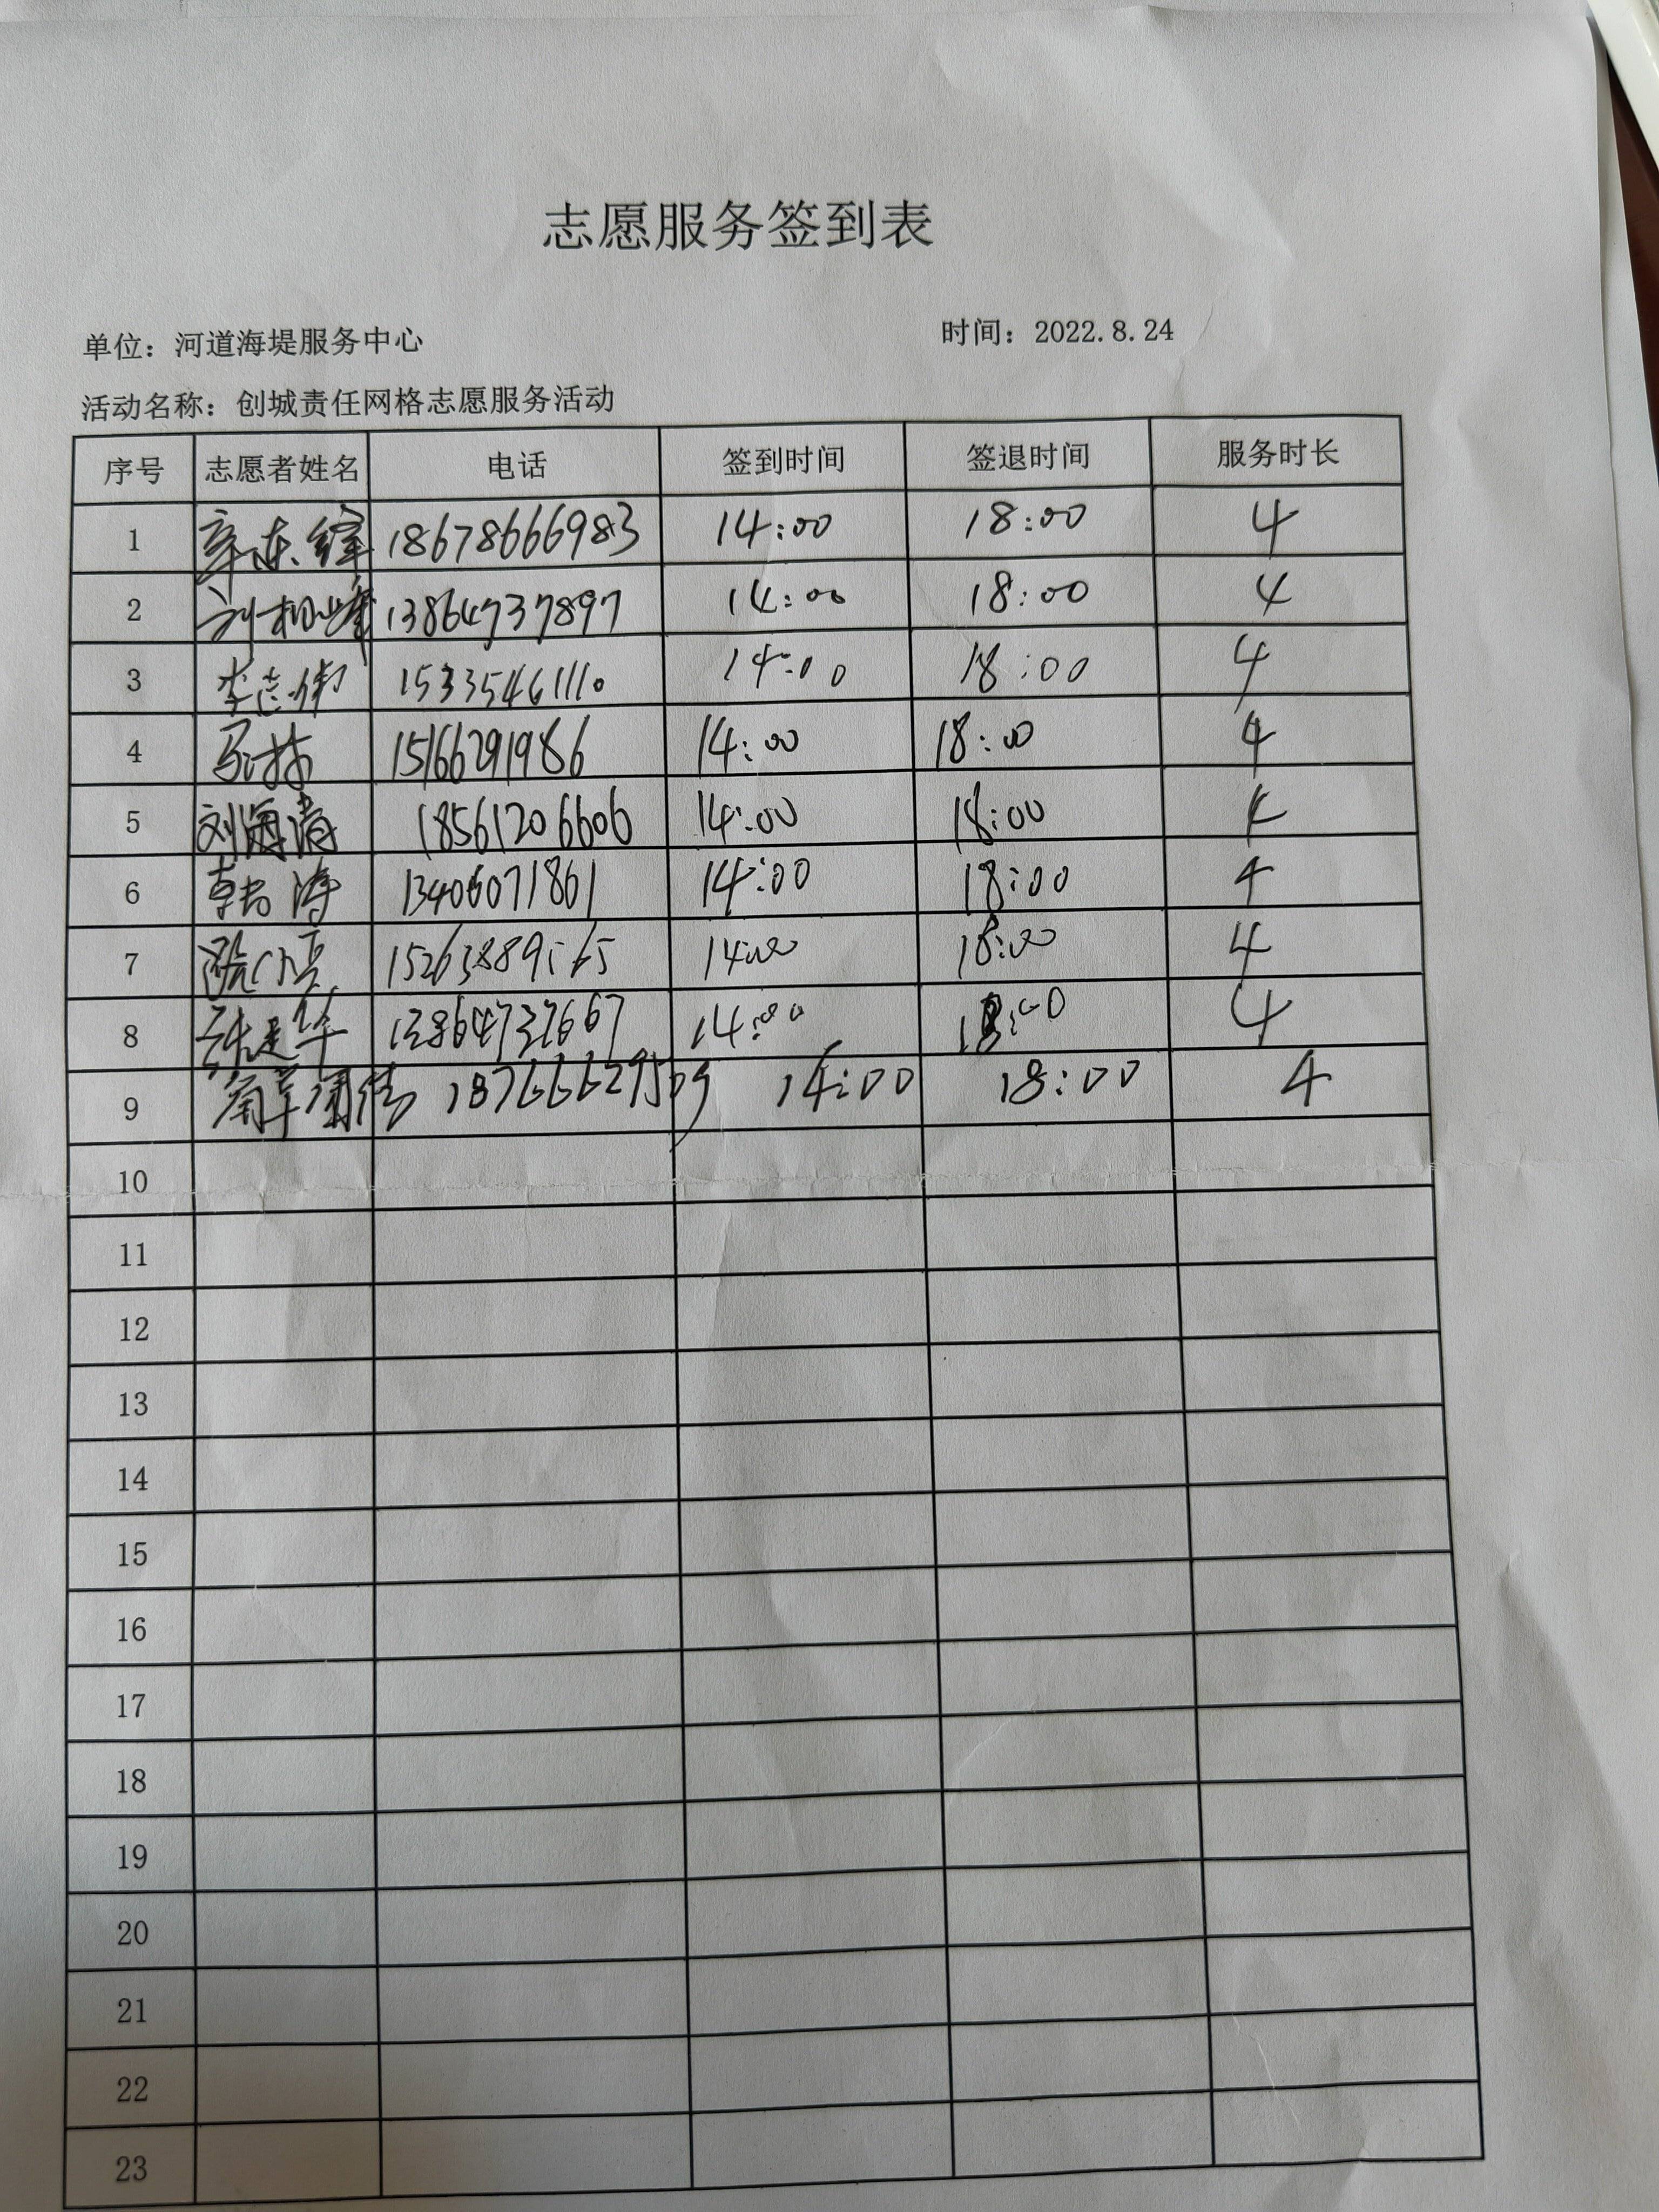 志愿服务签到表
单位：河道海堤服务中心 时间：2022.8.24
活动名称：创城责任网格志愿服务活动
序号 志愿者姓名 电话 签到时间 签退时间 服务时长
1 18678666983 14:00 18:00 4
2 13864737897 14:00 18:00 4
3 李志伟 15335461110 14:00 18:00 4
4 15166291986 14:00 18:00 4
5 刘海清 18561206606 14:00 18:00 4
6 韩涛 14:00 18:00 4
7 14:00 18:00 4
8 张建华 13864737667 14:00 18:00 4
9 18766629509 14:00 18:00 4
10
11
12
13
14
15
16
17
18
19
20
21
22
23